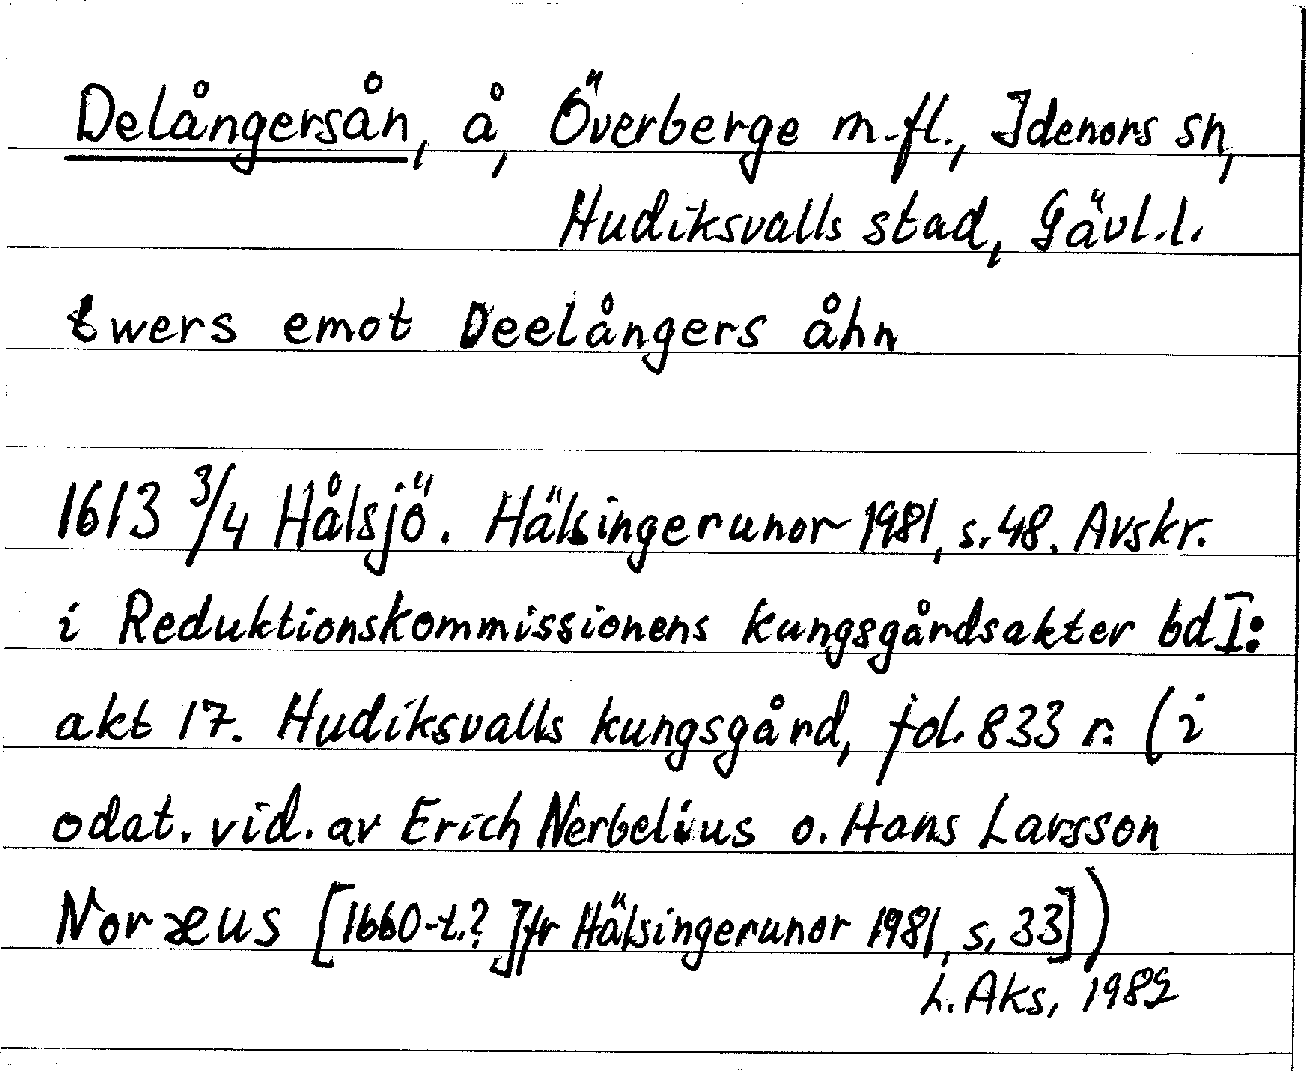 Delångersån, å, Överberge m.fl., Idenors sn,
Hudiksvalls stad, Gävl.l.
twers emot Deelångers åhn
1613 3/4 Hålsjö. Hälsingerunor 1981, s.48. Avskr.
i Reduktionskommissionens kungsgårdsakter bd I:
akt 17. Hudiksvalls kungsgård, fol. 833 r. (i
odat. vid. av Erich Nerbelius o. Hans Larsson
Noræus [1660-t.? Jfr Hälsingerunor 1981, s. 33])
L. Aks, 1989